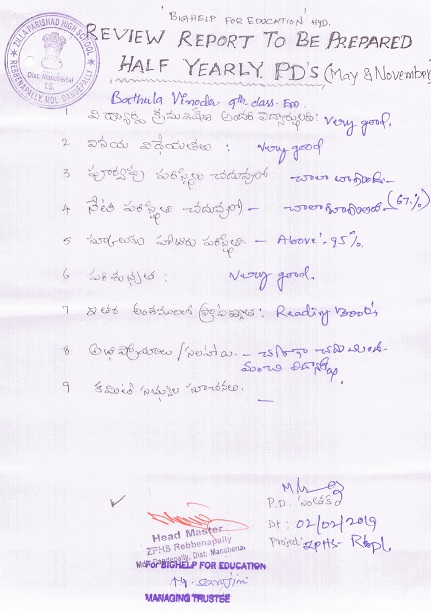 'BIGHELP FOR EDUCATION' HYD.
REVIEW REPORT TO BE PREPARED
HALF YEARLY PD'S (May & November)
ZILLA PARISHAD HIGH SCHOOL
Dist. Mancherial
T.S.
REBBENAPALLY, MDL. DANDEPALLY
Bathula Vinoda 9th class - Em
1 విద్యార్థి క్రమశిక్షణ : Very good.
2 వినయ విధేయతలు : Very good
3 పూర్వపు పరిస్థితి చదువులో - చాలా బాగుంది -
4 నేటి పరిస్థితి చదువులో - చాలా బాగుంది - (67.%)
5 స్కూలుకు హాజరు పరిస్థితి - Above - 95%.
6 పరిశుభ్రత : Very good.
7 ఇతర అంశములలో : Reading Book's
8 అభిప్రాయాలు / సలహాలు -
మంచి
9 కమిటీ సభ్యుల సూచనలు. -
P.D.
Dt : 02/02/2019
Project: ZPHS - Rbpl
Head Master
ZPHS Rebbenapally
Dandepally, Dist: Mancherial
For BIGHELP FOR EDUCATION
MANAGING TRUSTEE